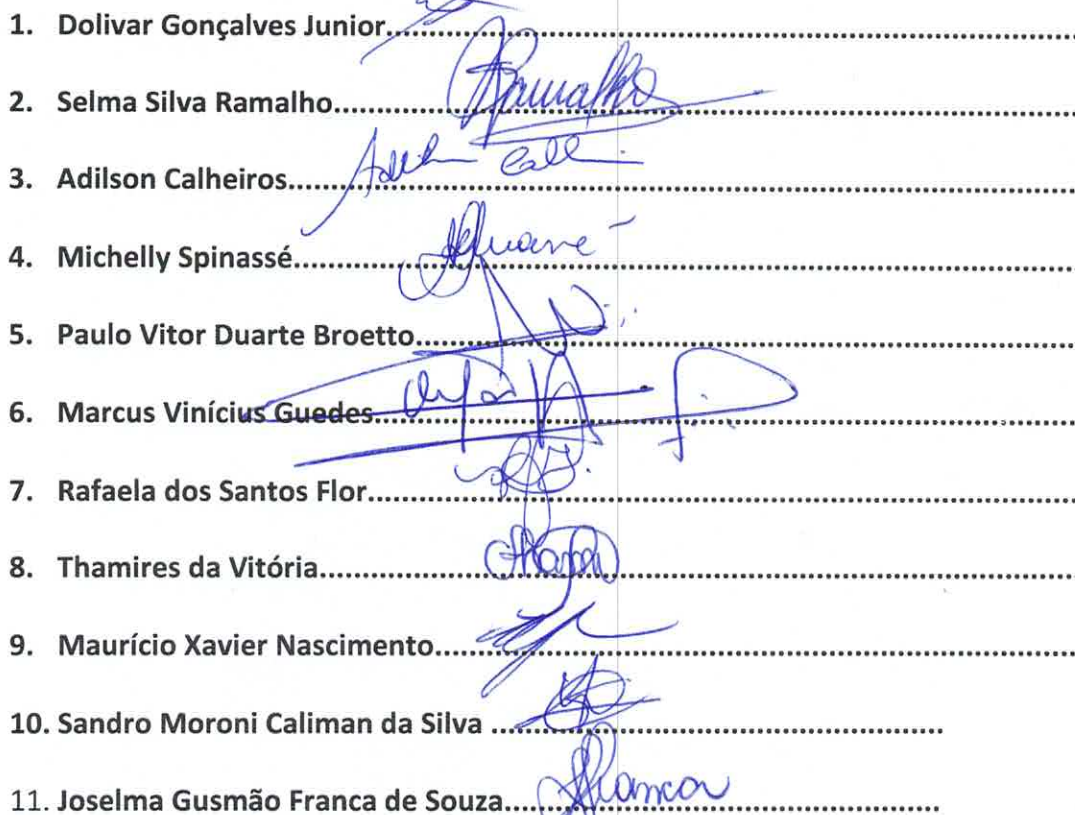 1. Dolivar Gonçalves Junior
2. Selma Silva Ramalho
Ramalho
3. Adilson Calheiros
4. Michelly Spinassé
5. Paulo Vitor Duarte Broetto
6. Marcus Vinícius Guedes
7. Rafaela dos Santos Flor
8. Thamires da Vitória
9. Maurício Xavier Nascimento
10. Sandro Moroni Caliman da Silva
11. Joselma Gusmão Franca de Souza